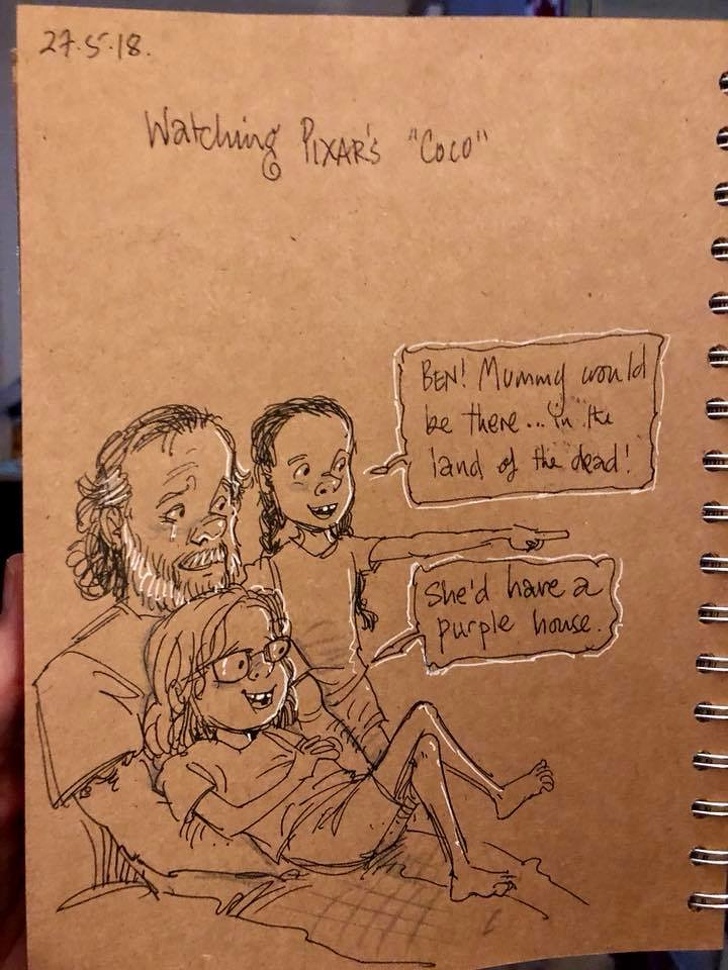 27.5.18.
Watching PIXAR's "Coco"
BEN! Mummy would
be there... in the
land of the dead!
She'd have a
purple house.